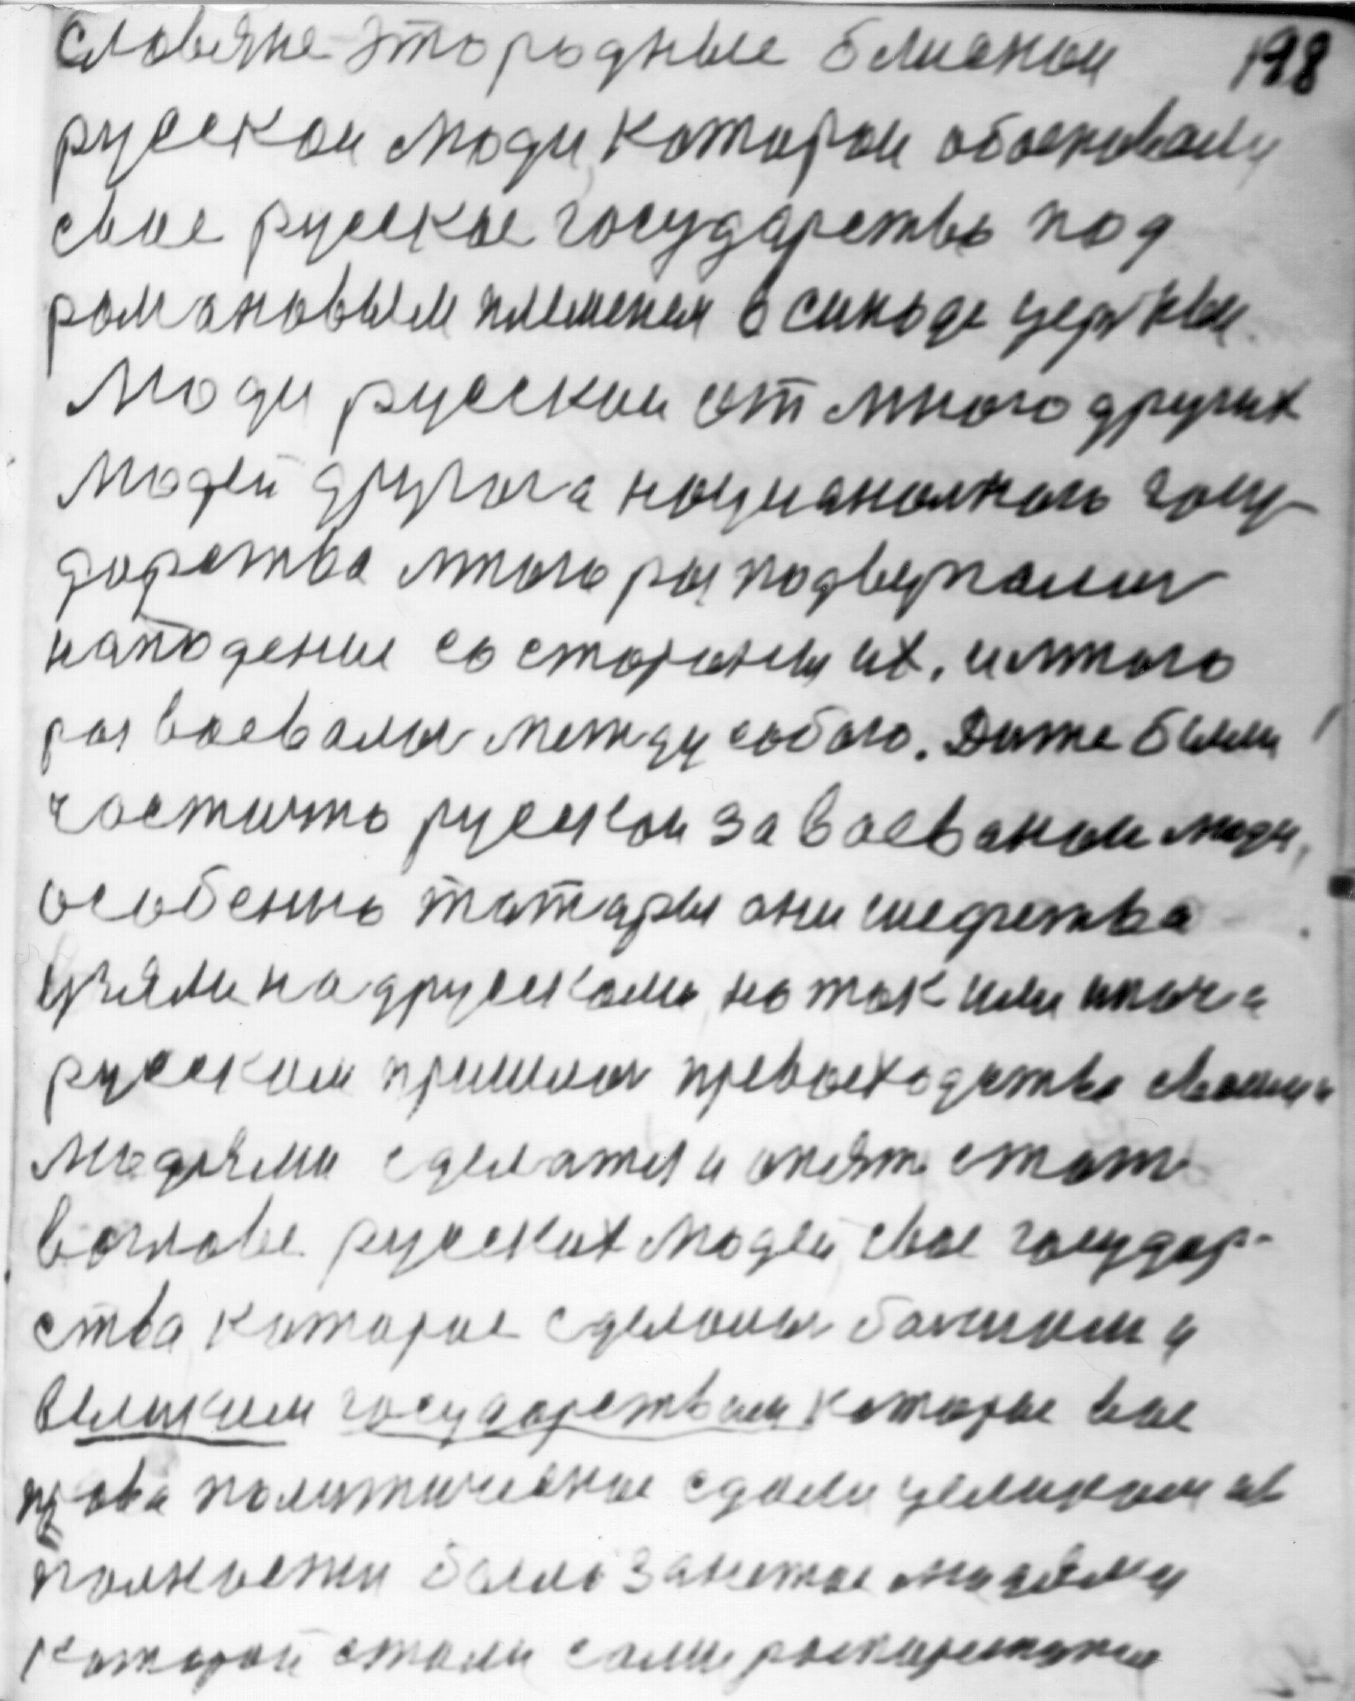 словяне это родные близнои 198
русскои люди, которои обосновали
свое русское государство под
романовым племенем в синоде церквы.
Люди русскои от много других
людей другога национолного госу-
дарства много раз подвергались
нападение со стораны их. и много
раз воевалис между собою. Даже были
частично русскои завоеванои люди,
особенно татары они шефства
узяли над русскоми, но так или иноча
русским пришлос превосходства своими
людями сделатся и опять стать
воглове русских людей, свое государ-
ства, которое сделалос болшим и
великим государством которое вое
права политическое сдали целиком ив
полности было занетое людями
которои стали сами